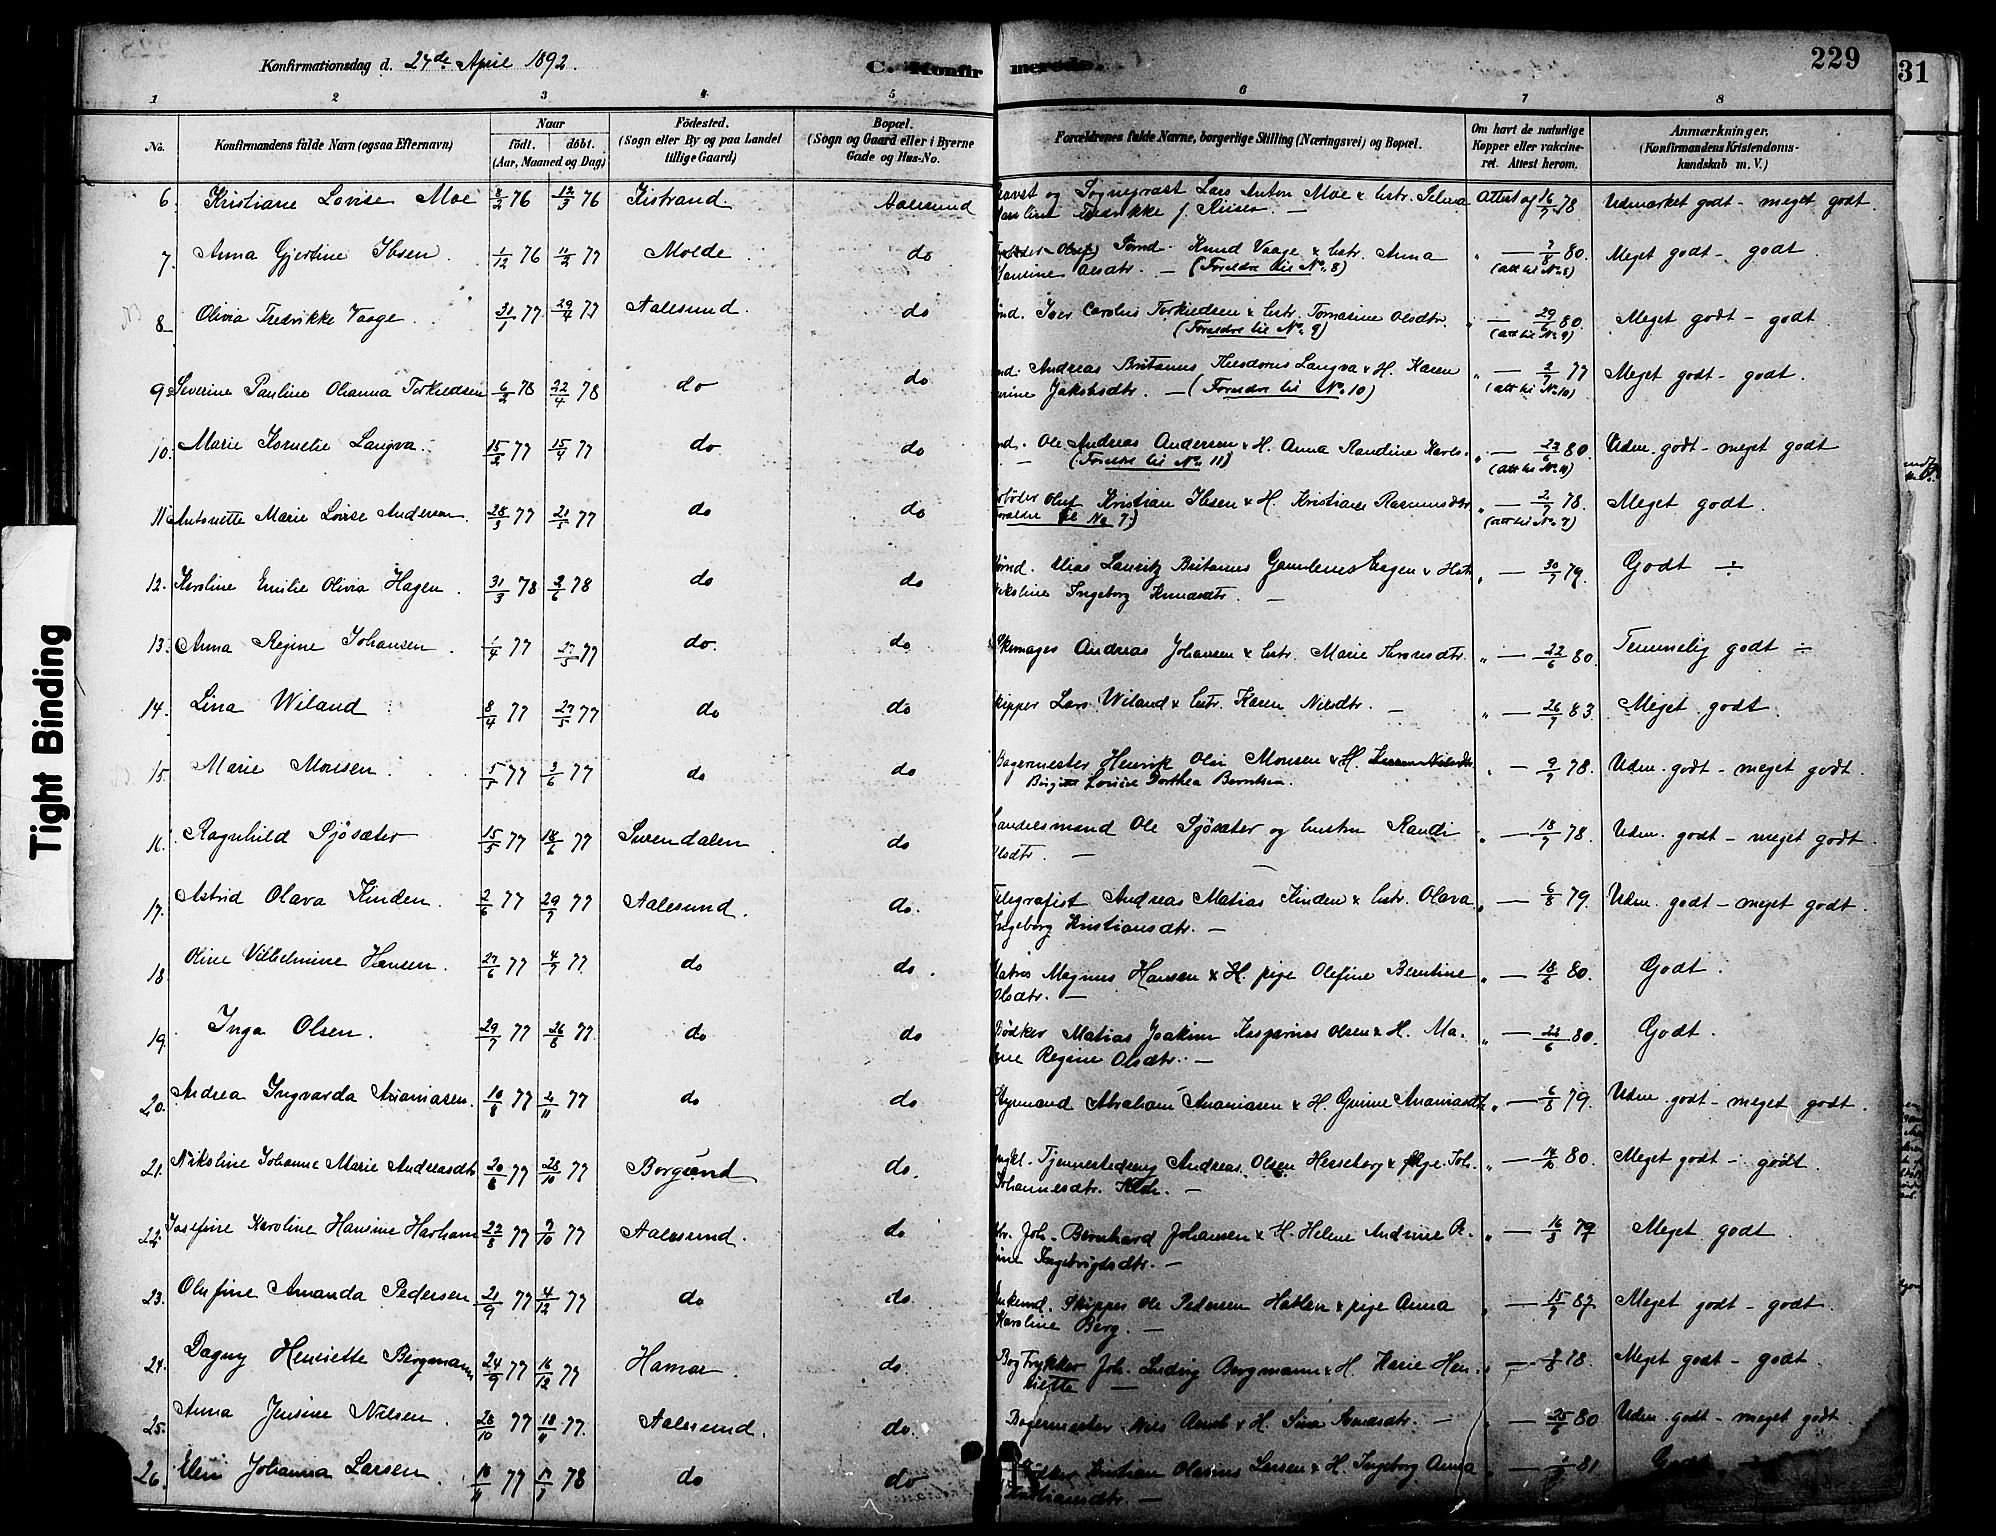 Konfirmationsdag d. 24de April 1892.
C. Konfirmerede.
229
31
1 2 3 4 5 6 7 8
No.
Konfirmandens fulde Navn (ogsaa Efternavn)
Naar
födt. döbt.
(Aar, Maaned og Dag)
Födested.
(Sogn eller By og paa Landet
tillige Gaard)
Bopæl.
(Sogn og Gaard eller i Byerne
Gade og Hus-No.
Forældrenes fulde Navne, borgerlige Stilling (Næringsvei) og Bopæl.
Om havt de naturlige
Kopper eller vakcine-
ret. Attest herom.
Anmærkninger,
(Konfirmandens Kristendoms-
kundskab m. V.)
6. Kristiane Lovise Moe 8/2 76 12/3 76 Kistrand Aalesund Provst og Sogneprest Lars Anton Moe & hstr. Selma Attest af 16/7 78 Udmærket godt - meget godt.
Fredrikke f.
7. Anna Gjertine Ibsen 1/12 76 11/2 77 Molde do Knud Vaage & hstr. Anna " — 7/8 80. Meget godt - godt
Hansine Olsdtr. — (Foreldre til No. 8) (att til No 8)
8 Olivia Fredrikke Vaage 31/1 77 29/4 77 Aalesund. do Iver Carolus Torkildsen & hstr. Tomasine Olsdtr. " — 29/6 80. Meget godt - godt
(Foreldre til No. 9) (att til No 9)
9. Severine Pauline Olianna Torkildsen 6/2 78 22/4 78 do do Andreas Britanus Theodorus Langva & H. Karen " — 2/7 77 Meget godt - godt.
Jakobsdtr. — (Foreldre til No. 10) (att til No. 10)
10. Marie Kornelie Langva. 15/2 77 15/4 77 do do Ole Andreas Andersen & H. Anna Randine Karls- — 23/6 80. Udm. godt - meget godt
(Foreldre til No. 11) (att til No 11)
11. Antonette Marie Lovise Andersen 28/3 77 21/5 77 do do Oluf Kristian Ibsen & H. Kristiane Rasmusdtr " — 2/7 78. Meget godt.
Foreldre til No 7.) (att til No. 7)
12. Karoline Emilie Olivia Hagen. 31/3 78 2/6 78 do do Elias Lauritz Britanus Hagen & Hstr " — 30/7 79. Godt ÷
Nikoline Ingeborg Knudsdtr. —
13. Anna Regine Johansen 1/4 77 27/5 77 do. do Skomager Andreas Johansen & hstr. Marie " — 22/6 80. Temmelig godt ÷
14. Lina Wiland 8/4 77 27/5 77 do do Skipper Lars Wiland & hstr. Karen Nilsdtr. — " — 26/7 83. Meget godt.
15. Marie Monsen. 5/5 77 3/6 77 do do Bagermester Henrik Olai Monsen & H. " — 9/7 78. Udm. godt - meget godt.
Lovise Dorthea Berntsen.
16. Ragnhild Sjösæter 15/5 77 18/6 77 Surendalen do Handelsmand Ole Sjösæter og hustru Randi " — 18/7 78. Udm. godt - meget godt.
Olsdtr. —
17. Astrid Olava Kinden. 2/6 77 29/7 77 Aalesund. do. Telegrafist Andreas Matias Kinden & hstr. Olava " — 6/8 79. Udm. godt - meget godt.
Ingeborg Kristiansdtr. —
18 Oline Vilhelmine Hansen. 27/6 77 4/7 77 do do. Matros Magnus Hansen & H. pige Olefine Berntine " — 18/6 80. Godt.
Olsdtr. —
19. Inga Olsen. 29/7 77 26/8 77. do do Bödker Matias Joakim Kasparius Olsen & H. Ma- " — 23/6 80. Godt.
Regine Olsdtr. —
20. Andrea Ingvarda Ananiasen. 10/8 77 2/11 77 do do Styrmand Abraham Ananiasen & H. Gurine Ananiasdtr " — 6/8 79. Udm. godt - meget godt.
21. Nikoline Johanne Marie Andreasdtr 20/8 77 28/10 77 Borgund do. Tjenestedreng Andreas Olsen Hesseberg & pige Joh. " — 14/6 80. Meget godt - godt.
Johannesdtr. —
22. Josefine Karoline Hansine Harham 22/8 77 7/10 77 Aalesund. do Joh. Bernhard Johansen & H. Helene Andrine " — 16/8 79 Meget godt.
Ingebrigtsdtr. —
23. Olufine Amanda Pedersen 21/9 77 4/12 77 do do. Enkemd. Skipper Ole Pedersen Hatlen & pige Anna " — 15/7 87. Meget godt - godt.
Karoline Berg. —
24. Dagny Henriette Bergmann 24/9 77 16/12 77 Hamar. do. Bogtrykker Joh. Ludvig Bergmann & H. Marie Hen- " — 78. Meget godt - godt.
riette —
25. Anna Jensine Nilsen. 28/10 77 18/11 77. Aalesund. do. Bagermester Nils & H. Sina — " — 25/6 80 Udm. godt - meget godt.
26. Elen Johanna Larsen 10/11 77 78 do do Bödker Kristian Olavus Larsen & H. Ingeborg Anna " — 81 Godt
Kristiansdtr. —
Tight Binding